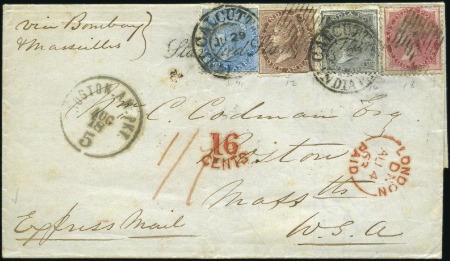 via Bombay
& Marseilles
CALCUTTA
JU 29
CALCUTTA
INDIA
BOSTON AM. PKT.
AUG
15
C. Codman Esq.
16
CENTS
Boston
LONDON
PAID
Masstts
Express Mail
U.S.A